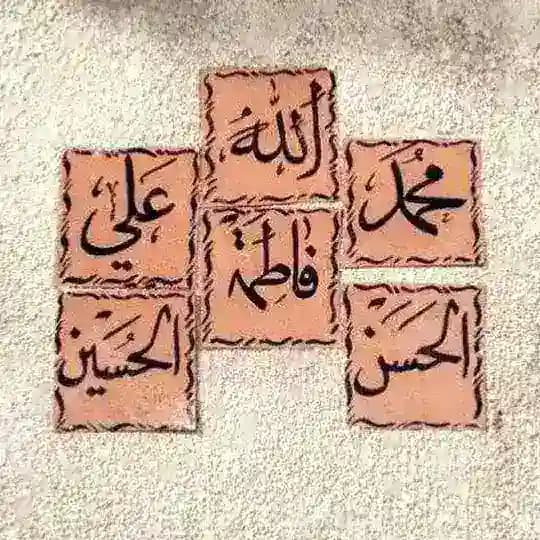 الله
محمد
علي
فاطمة
الحسن
الحسين